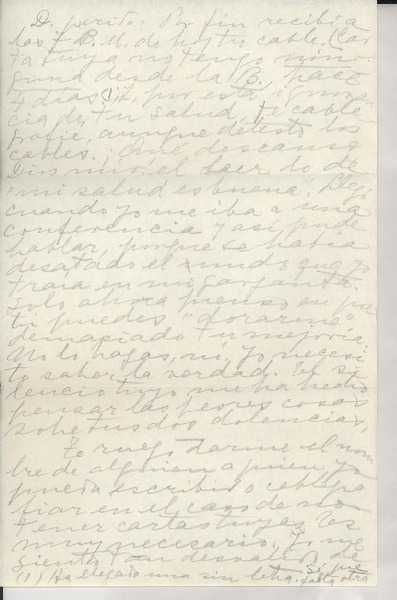 D. perido: Por fin recibí a
las 7 P.M. de hoy tu cable. (Car-
ta tuya no tengo nin-
guna desde la B, hace
4 días (1)), por esta ignoran-
cia de tu salud, te cable-
grafié, aunque detesto los
cables. Qué descanso
Dios mío! el leer lo de
"mi salud es buena". Llegó
cuando yo me iba a una
conferencia y así pude
hablar, porque se había
desatado el nudo que yo
traía en mi garganta.
Solo ahora pienso en que
tú puedes "dorarme"
demasiado tu mejoría.
No lo hagas, no. Yo necesi-
to saber la verdad. Tu si-
lencio tuyo me ha hecho
pensar las peores cosas
sobre tus dos dolencias.
Te ruego darme el nom-
bre de alguien a quien yo
pueda escribir o cablegra-
fiar en el caso de no
tener cartas tuyas. Es
muy necesario. Yo me
siento tan desvalida de
(1) Ha llegado una sin fecha. Sé que falta otra